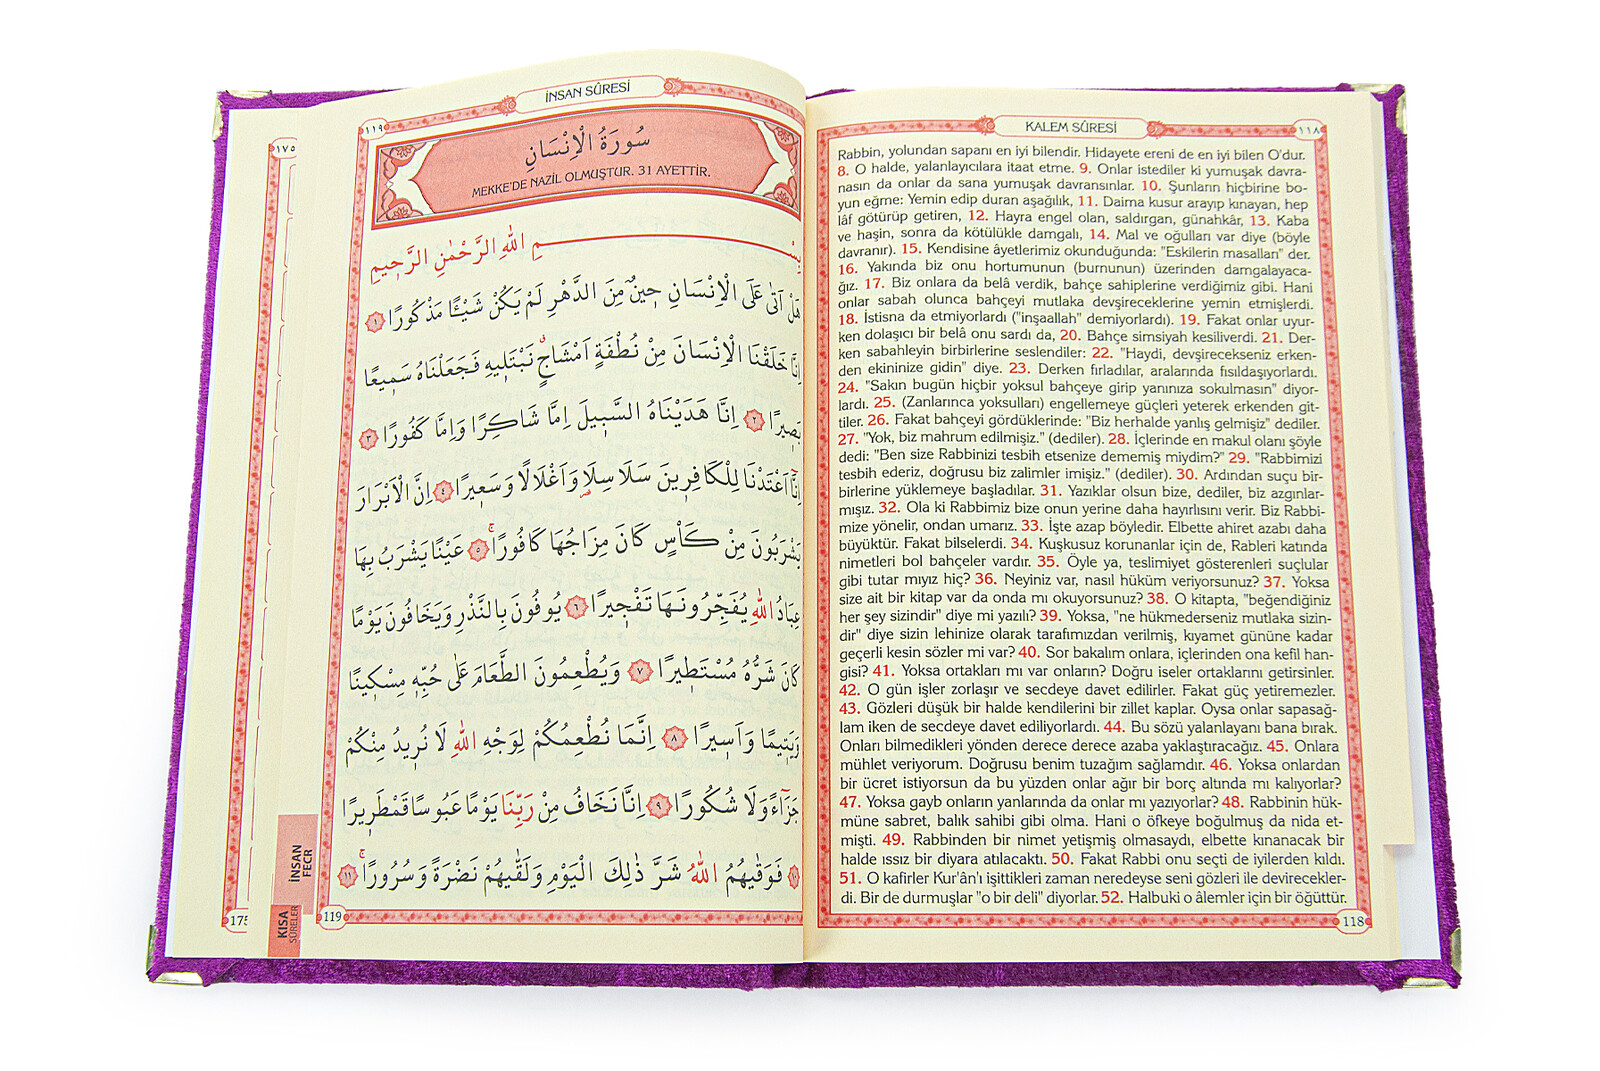 KALEM SÛRESİ
١١٨
Rabbin, yolundan sapanı en iyi bilendir. Hidayete ereni de en iyi bilen O'dur.
8. O halde, yalanlayıcılara itaat etme. 9. Onlar istediler ki yumuşak davra-
nasın da onlar da sana yumuşak davransınlar. 10. Şunların hiçbirine bo-
yun eğme: Yemin edip duran aşağılık, 11. Daima kusur arayıp kınayan, hep
lâf götürüp getiren, 12. Hayra engel olan, saldırgan, günahkâr, 13. Kaba
ve haşin, sonra da kötülükle damgalı, 14. Mal ve oğulları var diye (böyle
davranır). 15. Kendisine âyetlerimiz okunduğunda: "Eskilerin masalları" der.
16. Yakında biz onu hortumunun (burnunun) üzerinden damgalayaca-
ğız. 17. Biz onlara da belâ verdik, bahçe sahiplerine verdiğimiz gibi. Hani
onlar sabah olunca bahçeyi mutlaka devşireceklerine yemin etmişlerdi.
18. İstisna da etmiyorlardı ("inşaallah" demiyorlardı). 19. Fakat onlar uyur-
ken dolaşıcı bir belâ onu sardı da, 20. Bahçe simsiyah kesiliverdi. 21. Der-
ken sabahleyin birbirlerine seslendiler: 22. "Haydi, devşirecekseniz erken-
den ekininize gidin" diye. 23. Derken fırladılar, aralarında fısıldaşıyorlardı.
24. "Sakın bugün hiçbir yoksul bahçeye girip yanınıza sokulmasın" diyor-
lardı. 25. (Zanlarınca yoksulları) engellemeye güçleri yeterek erkenden git-
tiler. 26. Fakat bahçeyi gördüklerinde: "Biz herhalde yanlış gelmişiz" dediler.
27. "Yok, biz mahrum edilmişiz." (dediler). 28. İçlerinde en makul olanı şöyle
dedi: "Ben size Rabbinizi tesbih etsenize dememiş miydim?" 29. "Rabbimizi
tesbih ederiz, doğrusu biz zalimler imişiz." (dediler). 30. Ardından suçu bir-
birlerine yüklemeye başladılar. 31. Yazıklar olsun bize, dediler, biz azgınlar-
mışız. 32. Ola ki Rabbimiz bize onun yerine daha hayırlısını verir. Biz Rabbi-
mize yönelir, ondan umarız. 33. İşte azap böyledir. Elbette ahiret azabı daha
büyüktür. Fakat bilselerdi. 34. Kuşkusuz korunanlar için de, Rableri katında
nimetleri bol bahçeler vardır. 35. Öyle ya, teslimiyet gösterenleri suçlular
gibi tutar mıyız hiç? 36. Neyiniz var, nasıl hüküm veriyorsunuz? 37. Yoksa
size ait bir kitap var da onda mı okuyorsunuz? 38. O kitapta, "beğendiğiniz
her şey sizindir" diye mi yazılı? 39. Yoksa, "ne hükmederseniz mutlaka sizin-
dir" diye sizin lehinize olarak tarafımızdan verilmiş, kıyamet gününe kadar
geçerli kesin sözler mi var? 40. Sor bakalım onlara, içlerinden ona kefil han-
gisi? 41. Yoksa ortakları mı var onların? Doğru iseler ortaklarını getirsinler.
42. O gün işler zorlaşır ve secdeye davet edilirler. Fakat güç yetiremezler.
43. Gözleri düşük bir halde kendilerini bir zillet kaplar. Oysa onlar sapasağ-
lam iken de secdeye davet ediliyorlardı. 44. Bu sözü yalanlayanı bana bırak.
Onları bilmedikleri yönden derece derece azaba yaklaştıracağız. 45. Onlara
mühlet veriyorum. Doğrusu benim tuzağım sağlamdır. 46. Yoksa onlardan
bir ücret istiyorsun da bu yüzden onlar ağır bir borç altında mı kalıyorlar?
47. Yoksa gayb onların yanlarında da onlar mı yazıyorlar? 48. Rabbinin hük-
müne sabret, balık sahibi gibi olma. Hani o öfkeye boğulmuş da nida et-
mişti. 49. Rabbinden bir nimet yetişmiş olmasaydı, elbette kınanacak bir
halde ıssız bir diyara atılacaktı. 50. Fakat Rabbi onu seçti de iyilerden kıldı.
51. O kafirler Kur'ân'ı işittikleri zaman neredeyse seni gözleri ile devirecekler-
di. Bir de durmuşlar "o bir deli" diyorlar. 52. Halbuki o âlemler için bir öğüttür.
118
İNSAN SÛRESİ
١١٩
سُورَةُ الْاِنْسَانِ
MEKKE'DE NAZİL OLMUŞTUR. 31 AYETTİR.
بِسْمِ اللهِ الرَّحْمٰنِ الرَّحِيمِ
هَلْ اَتٰى عَلَى الْاِنْسَانِ حِينٌ مِنَ الدَّهْرِ لَمْ يَكُنْ شَيْـًٔا مَذْكُورًا ١
اِنَّا خَلَقْنَا الْاِنْسَانَ مِنْ نُطْفَةٍ اَمْشَاجٍۗ نَبْتَلِيهِ فَجَعَلْنَاهُ سَمِيعًا
بَصِيرًا ٢ اِنَّا هَدَيْنَاهُ السَّبِيلَ اِمَّا شَاكِرًا وَاِمَّا كَفُورًا ٣
اِنَّٓا اَعْتَدْنَا لِلْكَافِرِينَ سَلَاسِلَا۬ وَاَغْلَالًا وَسَعِيرًا ٤ اِنَّ الْاَبْرَارَ
يَشْرَبُونَ مِنْ كَأْسٍ كَانَ مِزَاجُهَا كَافُورًاۚ ٥ عَيْنًا يَشْرَبُ بِهَا
عِبَادُ اللهِ يُفَجِّرُونَهَا تَفْجِيرًا ٦ يُوفُونَ بِالنَّذْرِ وَيَخَافُونَ يَوْمًا
كَانَ شَرُّهُ مُسْتَطِيرًا ٧ وَيُطْعِمُونَ الطَّعَامَ عَلٰى حُبِّهِ مِسْكِينًا
وَيَتِيمًا وَاَسِيرًا ٨ اِنَّمَا نُطْعِمُكُمْ لِوَجْهِ اللهِ لَا نُرِيدُ مِنْكُمْ
جَزَٓاءً وَلَا شُكُورًا ٩ اِنَّا نَخَافُ مِنْ رَبِّنَا يَوْمًا عَبُوسًا قَمْطَرِيرًا
١٠ فَوَقٰيهُمُ اللهُ شَرَّ ذٰلِكَ الْيَوْمِ وَلَقّٰيهُمْ نَضْرَةً وَسُرُورًاۚ ١١
119
١٧٥
175
İNSAN
FECR
KISA
SÛRELER